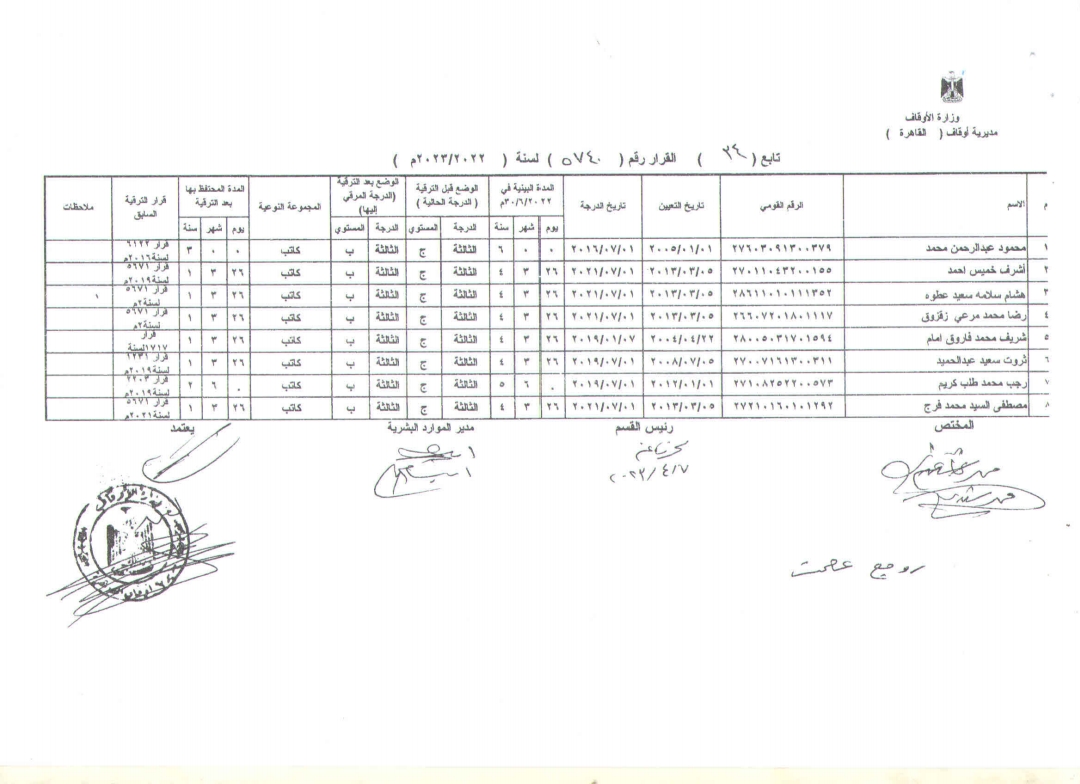 وزارة الأوقاف
مديرية أوقاف ( القاهرة )
تابع ( ٣٤ ) القرار رقم ( ٥٧٤٠ ) لسنة ( ٢٠٢٣/٢٠٢٢م )
م الاسم الرقم القومي تاريخ التعيين تاريخ الدرجة المدة البينية في ٣٠/٦/٢٠٢٢م الوضع قبل الترقية ( الدرجة الحالية ) الوضع بعد الترقية (الدرجة المرقي إليها) المجموعة النوعية المدة المحتفظ بها بعد الترقية قرار الترقية السابق ملاحظات
يوم شهر سنة الدرجة المستوي الدرجة المستوي يوم شهر سنة
١ محمود عبدالرحمن محمد ٢٧٦٠٣٠٩١٣٠٠٣٧٩ ٢٠٠٥/٠١/٠١ ٢٠١٦/٠٧/٠١ ٠ ٠ ٦ الثالثة ج الثالثة ب كاتب ٠ ٠ ٣ قرار ٦١٢٢ لسنة٢٠١٦م
٢ أشرف خميس احمد ٢٧٠١١٠٤٣٢٠٠١٥٥ ٢٠١٣/٠٣/٠٥ ٢٠٢١/٠٧/٠١ ٢٦ ٣ ٤ الثالثة ج الثالثة ب كاتب ٢٦ ٣ ١ قرار ٥٦٧١ لسنة٢٠١٩م
٣ هشام سلامه سعيد عطوه ٢٨٦١١٠١٠١١١٣٥٢ ٢٠١٣/٠٣/٠٥ ٢٠٢١/٠٧/٠١ ٢٦ ٣ ٤ الثالثة ج الثالثة ب كاتب ٢٦ ٣ ١ قرار ٥٦٧١ لسنة٢م
٤ رضا محمد مرعي زقزوق ٢٦٦٠٧٢٠١٨٠١١١٧ ٢٠١٣/٠٣/٠٥ ٢٠٢١/٠٧/٠١ ٢٦ ٣ ٤ الثالثة ج الثالثة ب كاتب ٢٦ ٣ ١ قرار ٥٦٧١ لسنة٢م
٥ شريف محمد فاروق امام ٢٨٠٠٥٠٣١٧٠١٥٩٤ ٢٠٠٤/٠٤/٢٢ ٢٠١٩/٠١/٠٧ ٢٦ ٣ ٤ الثالثة ج الثالثة ب كاتب ٢٦ ٣ ١ قرار ١٧١٧لسنة
٦ ثروت سعيد عبدالحميد ٢٧٠٠٧١٦١٣٠٠٣١١ ٢٠٠٨/٠٧/٠٥ ٢٠١٩/٠٧/٠١ ٢٦ ٣ ٤ الثالثة ج الثالثة ب كاتب ٢٦ ٣ ١ قرار ١٢٣١ لسنة٢٠١٩م
٧ رجب محمد طلب كريم ٢٧١٠٨٢٥٢٢٠٠٥٧٣ ٢٠١٢/٠١/٠١ ٢٠١٩/٠٧/٠١ ٠ ٦ ٥ الثالثة ج الثالثة ب كاتب ٠ ٦ ٢ قرار ٢٢٠٣ لسنة٢٠١٩م
٨ مصطفى السيد محمد فرج ٢٧٢١٠١٦٠١٠١٢٩٢ ٢٠١٣/٠٣/٠٥ ٢٠٢١/٠٧/٠١ ٢٦ ٣ ٤ الثالثة ج الثالثة ب كاتب ٢٦ ٣ ١ قرار ٥٦٧١ لسنة٢٠٢١م
المختص رئيس القسم مدير الموارد البشرية يعتمد
٢٠٢٣/٤/٧